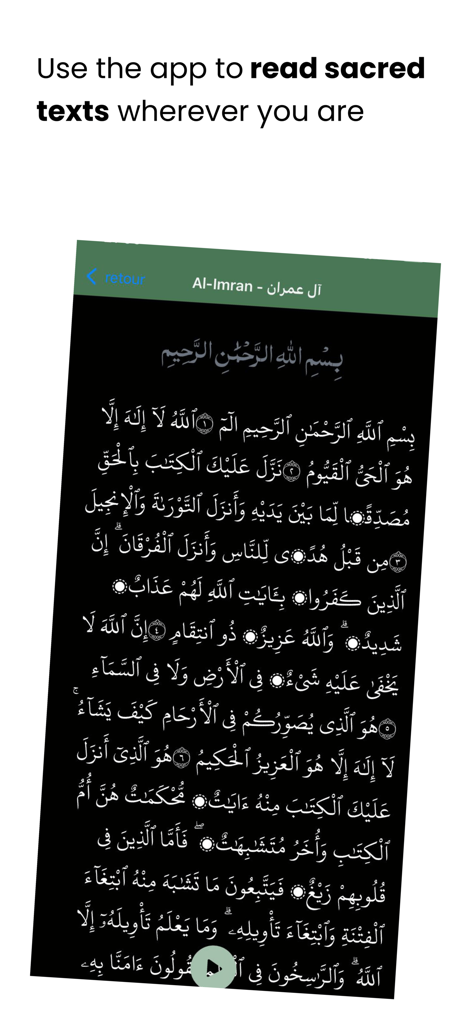 Use the app to read sacred
texts wherever you are
retour
Al-Imran - آل عمران
بِسْمِ اللهِ الرَّحْمَٰنِ الرَّحِيمِ
بِسْمِ ٱللَّهِ ٱلرَّحْمَـٰنِ ٱلرَّحِيمِ الٓمٓ ١ ٱللَّهُ لَآ إِلَـٰهَ إِلَّا
هُوَ ٱلْحَىُّ ٱلْقَيُّومُ ٢ نَزَّلَ عَلَيْكَ ٱلْكِتَـٰبَ بِٱلْحَقِّ
مُصَدِّقًۭا لِّمَا بَيْنَ يَدَيْهِ وَأَنزَلَ ٱلتَّوْرَىٰةَ وَٱلْإِنجِيلَ
٣ مِن قَبْلُ هُدًۭى لِّلنَّاسِ وَأَنزَلَ ٱلْفُرْقَانَ ۗ إِنَّ
ٱلَّذِينَ كَفَرُوا۟ بِـَٔايَـٰتِ ٱللَّهِ لَهُمْ عَذَابٌۭ
شَدِيدٌۭ ۗ وَٱللَّهُ عَزِيزٌۭ ذُو ٱنتِقَامٍ ٤ إِنَّ ٱللَّهَ لَا
يَخْفَىٰ عَلَيْهِ شَىْءٌۭ فِى ٱلْأَرْضِ وَلَا فِى ٱلسَّمَآءِ
٥ هُوَ ٱلَّذِى يُصَوِّرُكُمْ فِى ٱلْأَرْحَامِ كَيْفَ يَشَآءُ ۚ
لَآ إِلَـٰهَ إِلَّا هُوَ ٱلْعَزِيزُ ٱلْحَكِيمُ ٦ هُوَ ٱلَّذِىٓ أَنزَلَ
عَلَيْكَ ٱلْكِتَـٰبَ مِنْهُ ءَايَـٰتٌۭ مُّحْكَمَـٰتٌ هُنَّ أُمُّ
ٱلْكِتَـٰبِ وَأُخَرُ مُتَشَـٰبِهَـٰتٌۭ ۖ فَأَمَّا ٱلَّذِينَ فِى
قُلُوبِهِمْ زَيْغٌۭ فَيَتَّبِعُونَ مَا تَشَـٰبَهَ مِنْهُ ٱبْتِغَآءَ
ٱلْفِتْنَةِ وَٱبْتِغَآءَ تَأْوِيلِهِۦ ۗ وَمَا يَعْلَمُ تَأْوِيلَهُۥٓ إِلَّا
ٱللَّهُ ۗ وَٱلرَّٰسِخُونَ فِى ءَامَنَّا بِهِۦ